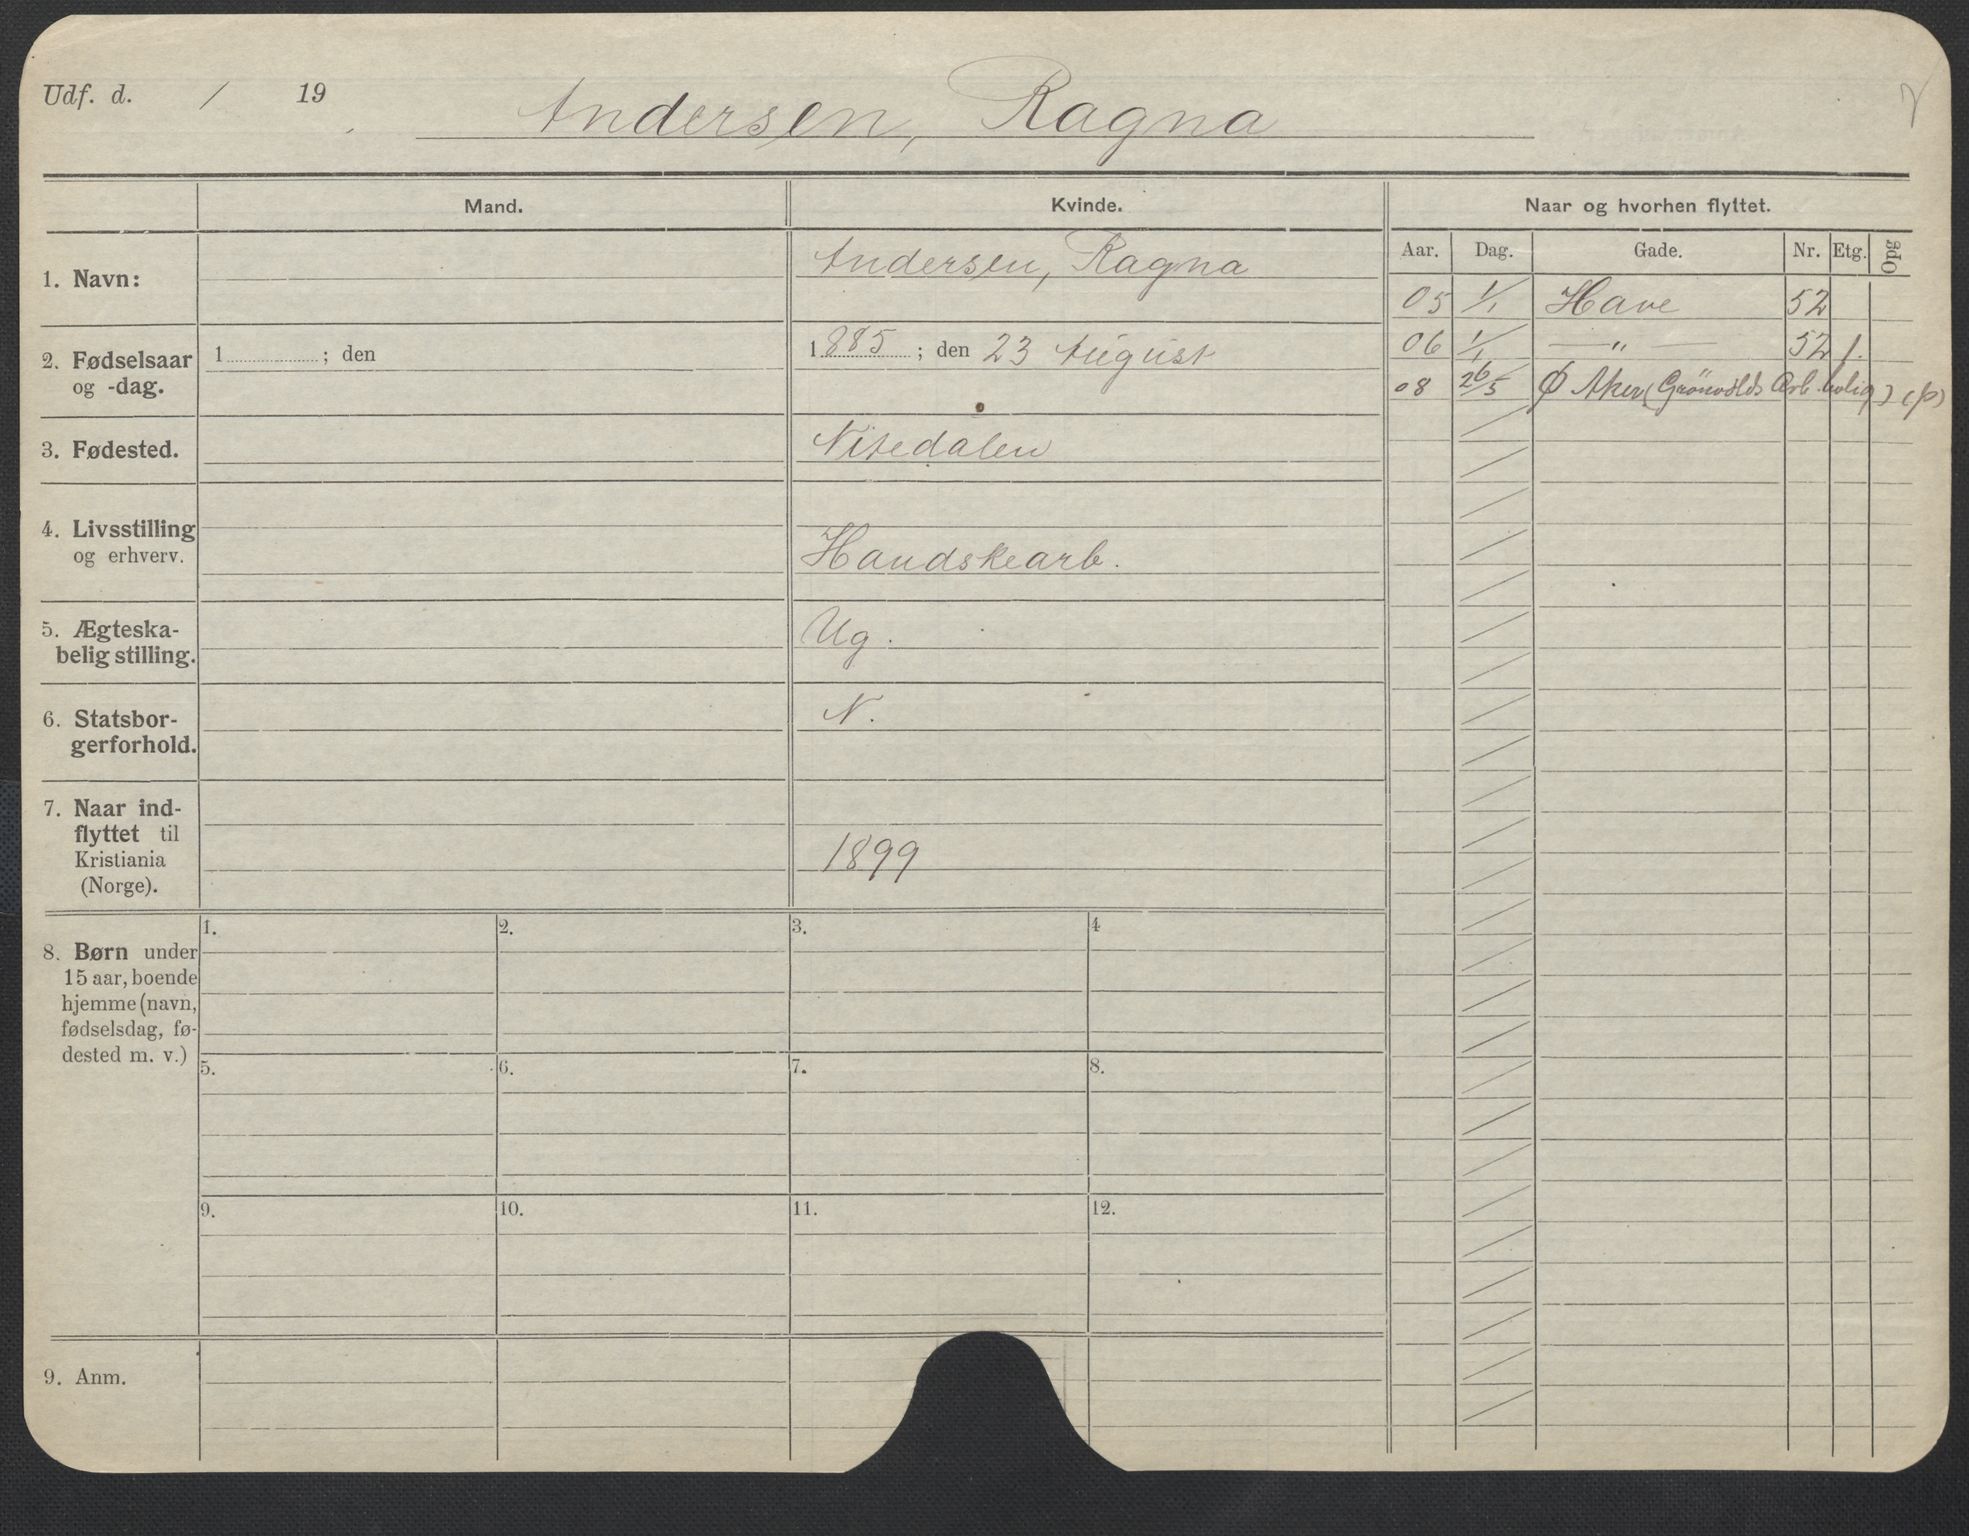 Udf. d. / 19
Andersen, Ragna
Mand.
Kvinde.
Naar og hvorhen flyttet.
Aar. Dag. Gade. Nr. Etg. Opg
1. Navn:
Andersen, Ragna
05 1/1 Have 52
06 1/1 — „ — 52 1.
08 26/5 Ø Aker (Grönvolds Arb. bolig) (p)
2. Fødselsaar
og -dag.
1 ; den
1885 ; den 23 August
3. Fødested.
Nitedalen
4. Livsstilling
og erhverv.
Handskearb.
5. Ægteska-
belig stilling.
Ug.
6. Statsbor-
gerforhold.
N.
7. Naar ind-
flyttet til
Kristiania
(Norge).
1899
8. Børn under
15 aar, boende
hjemme (navn,
fødselsdag, fø-
dested m. v.)
1. 2. 3. 4
5. 6. 7. 8.
9. 10. 11. 12.
9. Anm.